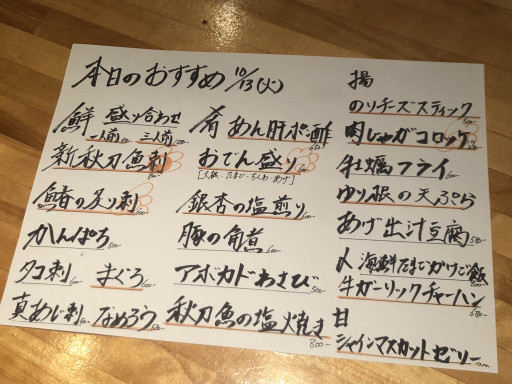 本日のおすすめ 10/13(火)
鮮 盛り合わせ
二人前 三人前
新秋刀魚刺
鯖の炙り刺
かんぱち
タコ刺 まぐろ
真あじ刺 なめろう
肴 あん肝ポン酢
おでん盛り
[大根・たまご・ちくわ・あげ]
銀杏の塩煎り
豚の角煮 600-
アボカドわさび 500-
秋刀魚の塩焼き 800-
揚
のりチーズスティック
肉じゃがコロッケ
牡蠣フライ
ゆり根の天ぷら
あげ出汁豆腐
〆 海鮮たまごかけご飯
牛ガーリックチャーハン
甘
シャインマスカットゼリー